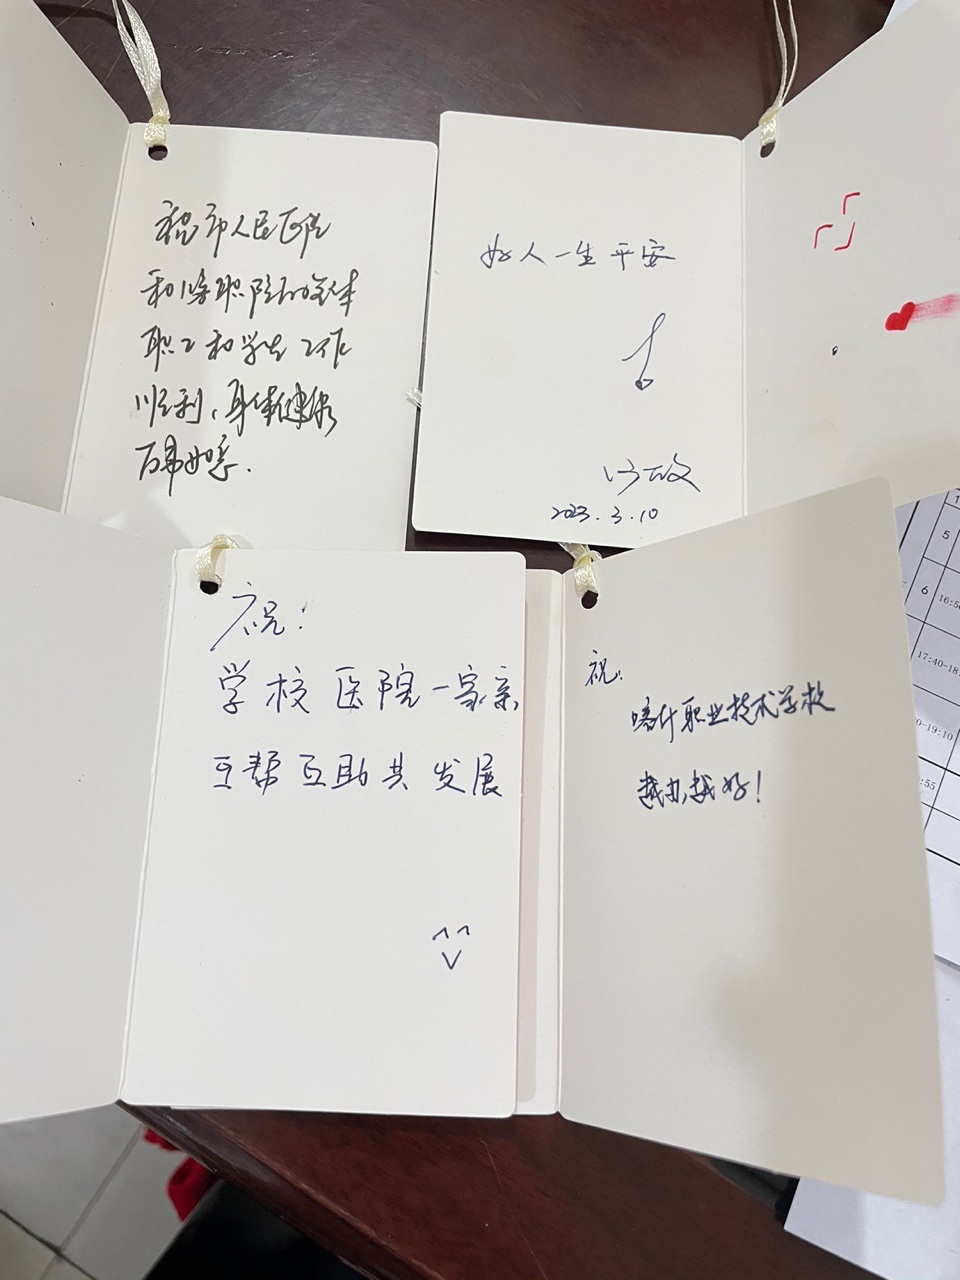 祝市人民医院
和喀职院的全体
职工和学生工作
顺利，身体健康
万事如意.
好人一生平安
2023.3.10
祝!
学校医院一家亲
互帮互助共发展
祝:
喀什职业技术学校
越办越好!
5
6
16:50
17:40-18
0-19:10
:55